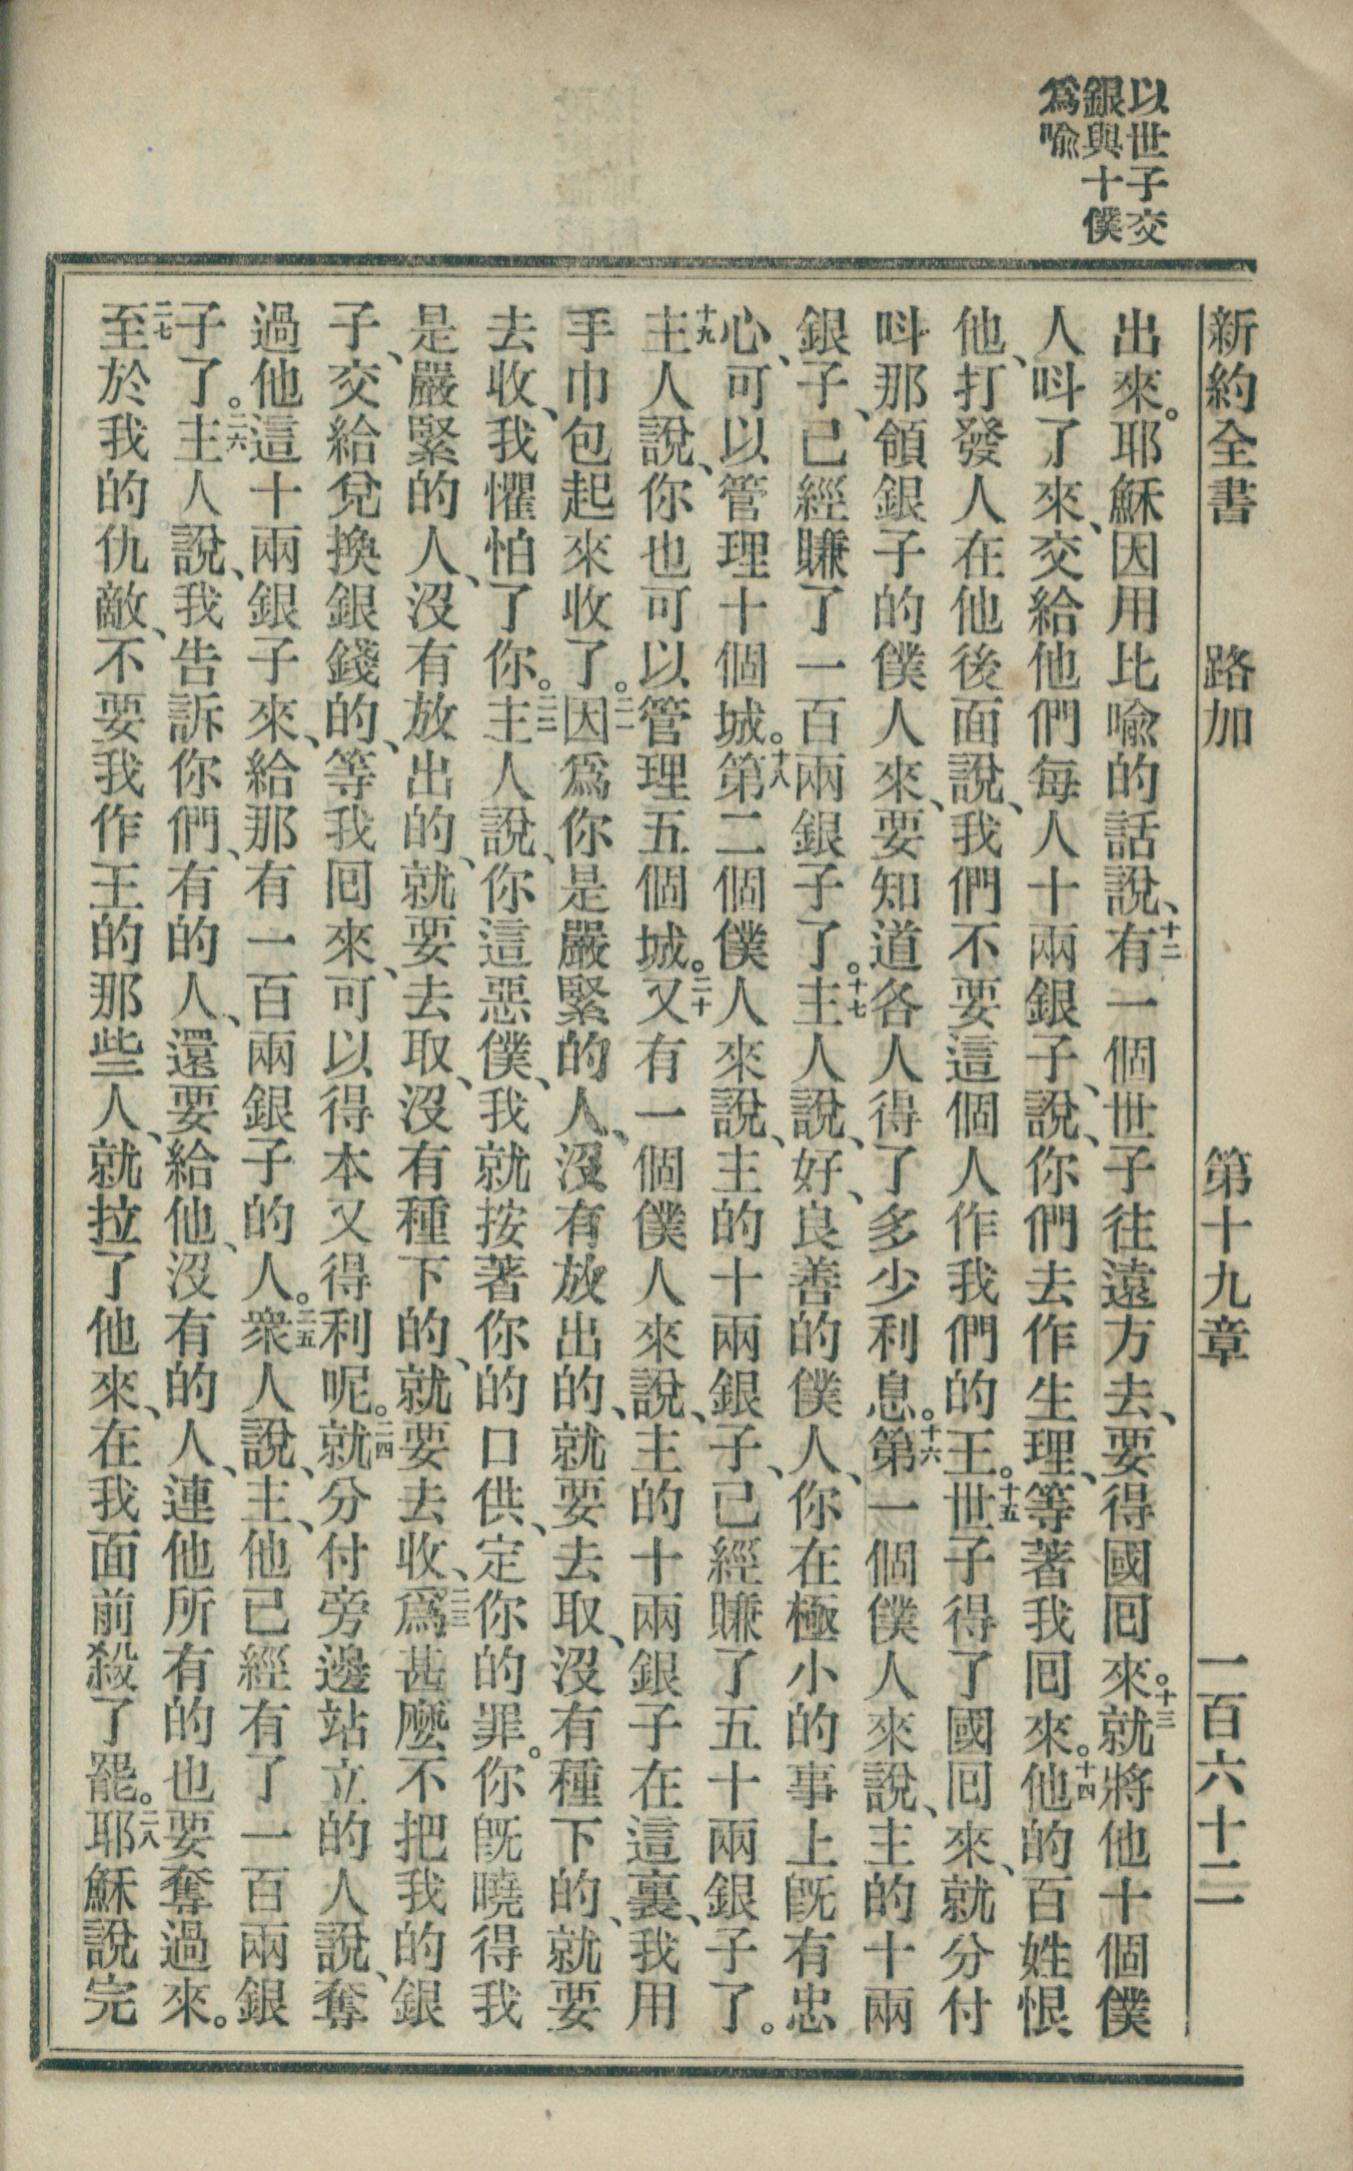 以世子交
銀與十僕
爲喩
新約全書 路加 第十九章 一百六十二
出來。耶穌因用比喩的話說、十二有一個世子往遠方去、要得國囘來。十三就將他十個僕
人呌了來、交給他們每人十兩銀子、說、你們去作生理、等著我囘來。十四他的百姓恨
他、打發人在他後面說、我們不要這個人作我們的王。十五世子得了國囘來、就分付
呌那領銀子的僕人來、要知道各人得了多少利息。十六第一個僕人來說、主的十兩
銀子、已經賺了一百兩銀子了。十七主人說、好、良善的僕人、你在極小的事上旣有忠
心、可以管理十個城。十八第二個僕人來說、主的十兩銀子、已經賺了五十兩銀子了。
十九主人說、你也可以管理五個城。二十又有一個僕人來說、主的十兩銀子在這裏、我用
手巾包起來收了。二一因爲你是嚴緊的人、沒有放出的、就要去取、沒有種下的、就要
去收、我懼怕了你。二二主人說、你這惡僕、我就按著你的口供、定你的罪。你旣曉得我
是嚴緊的人、沒有放出的、就要去取、沒有種下的、就要去收、二三爲甚麼不把我的銀
子、交給兌換銀錢的、等我囘來、可以得本又得利呢。二四就分付旁邊站立的人說、奪
過他這十兩銀子來、給那有一百兩銀子的人。二五衆人說、主、他已經有了一百兩銀
子了。二六主人說、我告訴你們、有的人、還要給他、沒有的人、連他所有的也要奪過來。
二七至於我的仇敵、不要我作王的那些人、就拉了他來、在我面前殺了罷。二八耶穌說完